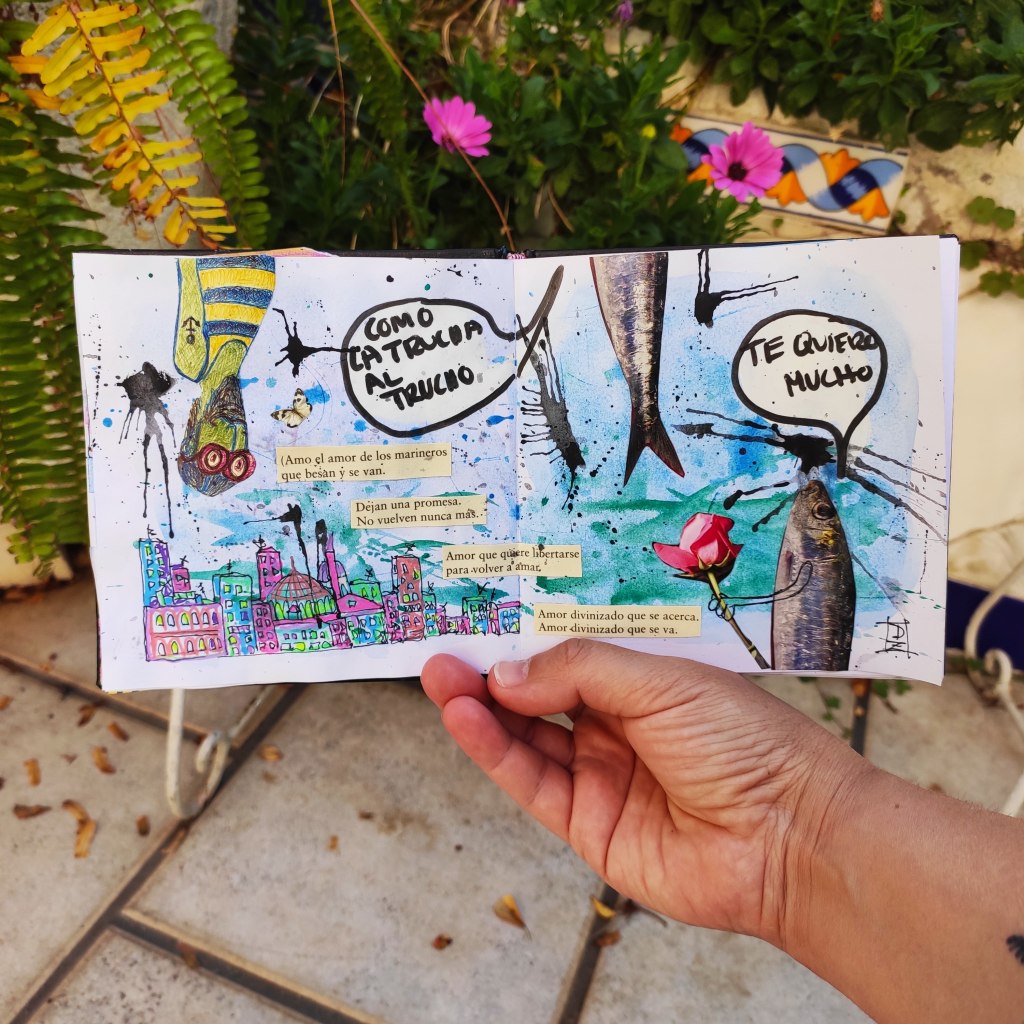 COMO
LA TRUCHA
AL
TRUCHO.
TE QUIERO
MUCHO
(Amo el amor de los marineros
que besan y se van.
Dejan una promesa.
No vuelven nunca más.
Amor que quiere libertarse
para volver a amar.
Amor divinizado que se acerca.
Amor divinizado que se va.